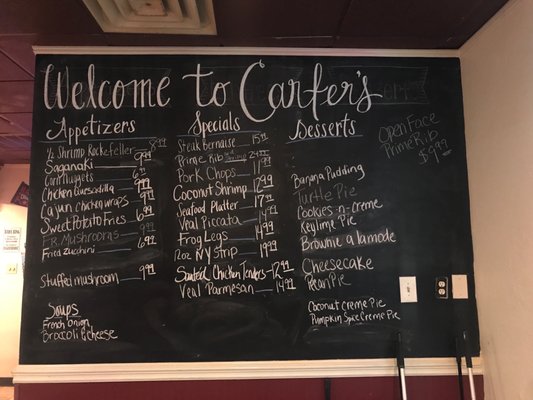 Welcome to Carfer's
Appetizers
1/2 Shrimp Rockefeller 8.99
Saganaki 9.99
Corn Nuggets 6.99
Chicken Quesadilla 9.99
Cajun chicken wraps 9.99
Sweet Potato Fries 6.99
Fr. Mushrooms
Fried zucchini 6.92
Stuffed mushroom 9.99
Soups
French Onion
Broccoli & cheese
Specials
Steak bernaise 15.99
Prime Rib Shrimp 24.99
Pork Chops 11.99
Coconut Shrimp 12.99
Seafood Platter 17.99
Veal Piccata 14.99
Frog Legs 14.99
12oz NY Strip 19.99
Sauteéd Chicken Tenders 12.99
Veal Parmesan 14.99
Desserts
Banana Pudding
Turtle Pie
Cookies-n-creme
Keylime Pie
Brownie a lamode
Cheesecake
Pecan Pie
Coconut creme Pie
Pumpkin Spice Creme Pie
Open Face
Prime Rib
$9.99